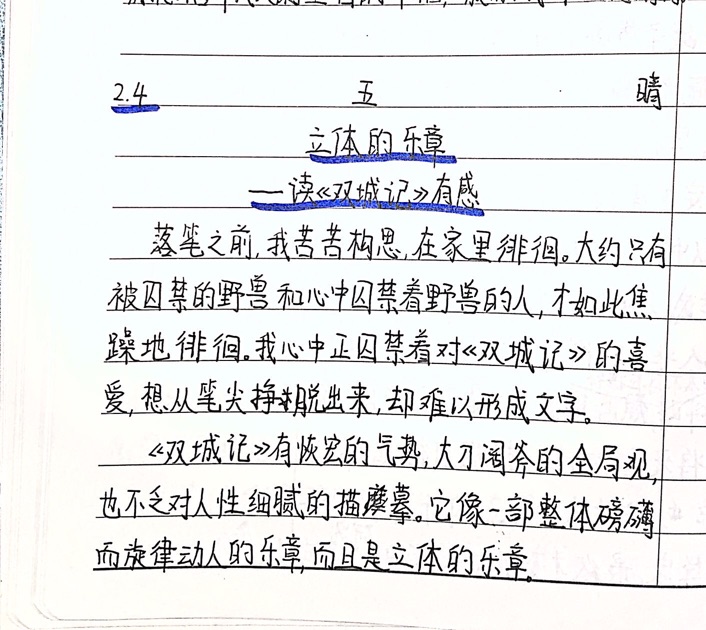 2.4 五 晴
立体的乐章
—读《双城记》有感
落笔之前,我苦苦构思,在家里徘徊。大约只有
被囚禁的野兽和心中囚禁着野兽的人,才如此焦
躁地徘徊。我心中正囚禁着对《双城记》的喜
爱,想从笔尖挣脱出来,却难以形成文字。
《双城记》有恢宏的气势,大刀阔斧的全局观,
也不乏对人性细腻的描摹。它像一部整体磅礴
而旋律动人的乐章,而且是立体的乐章。